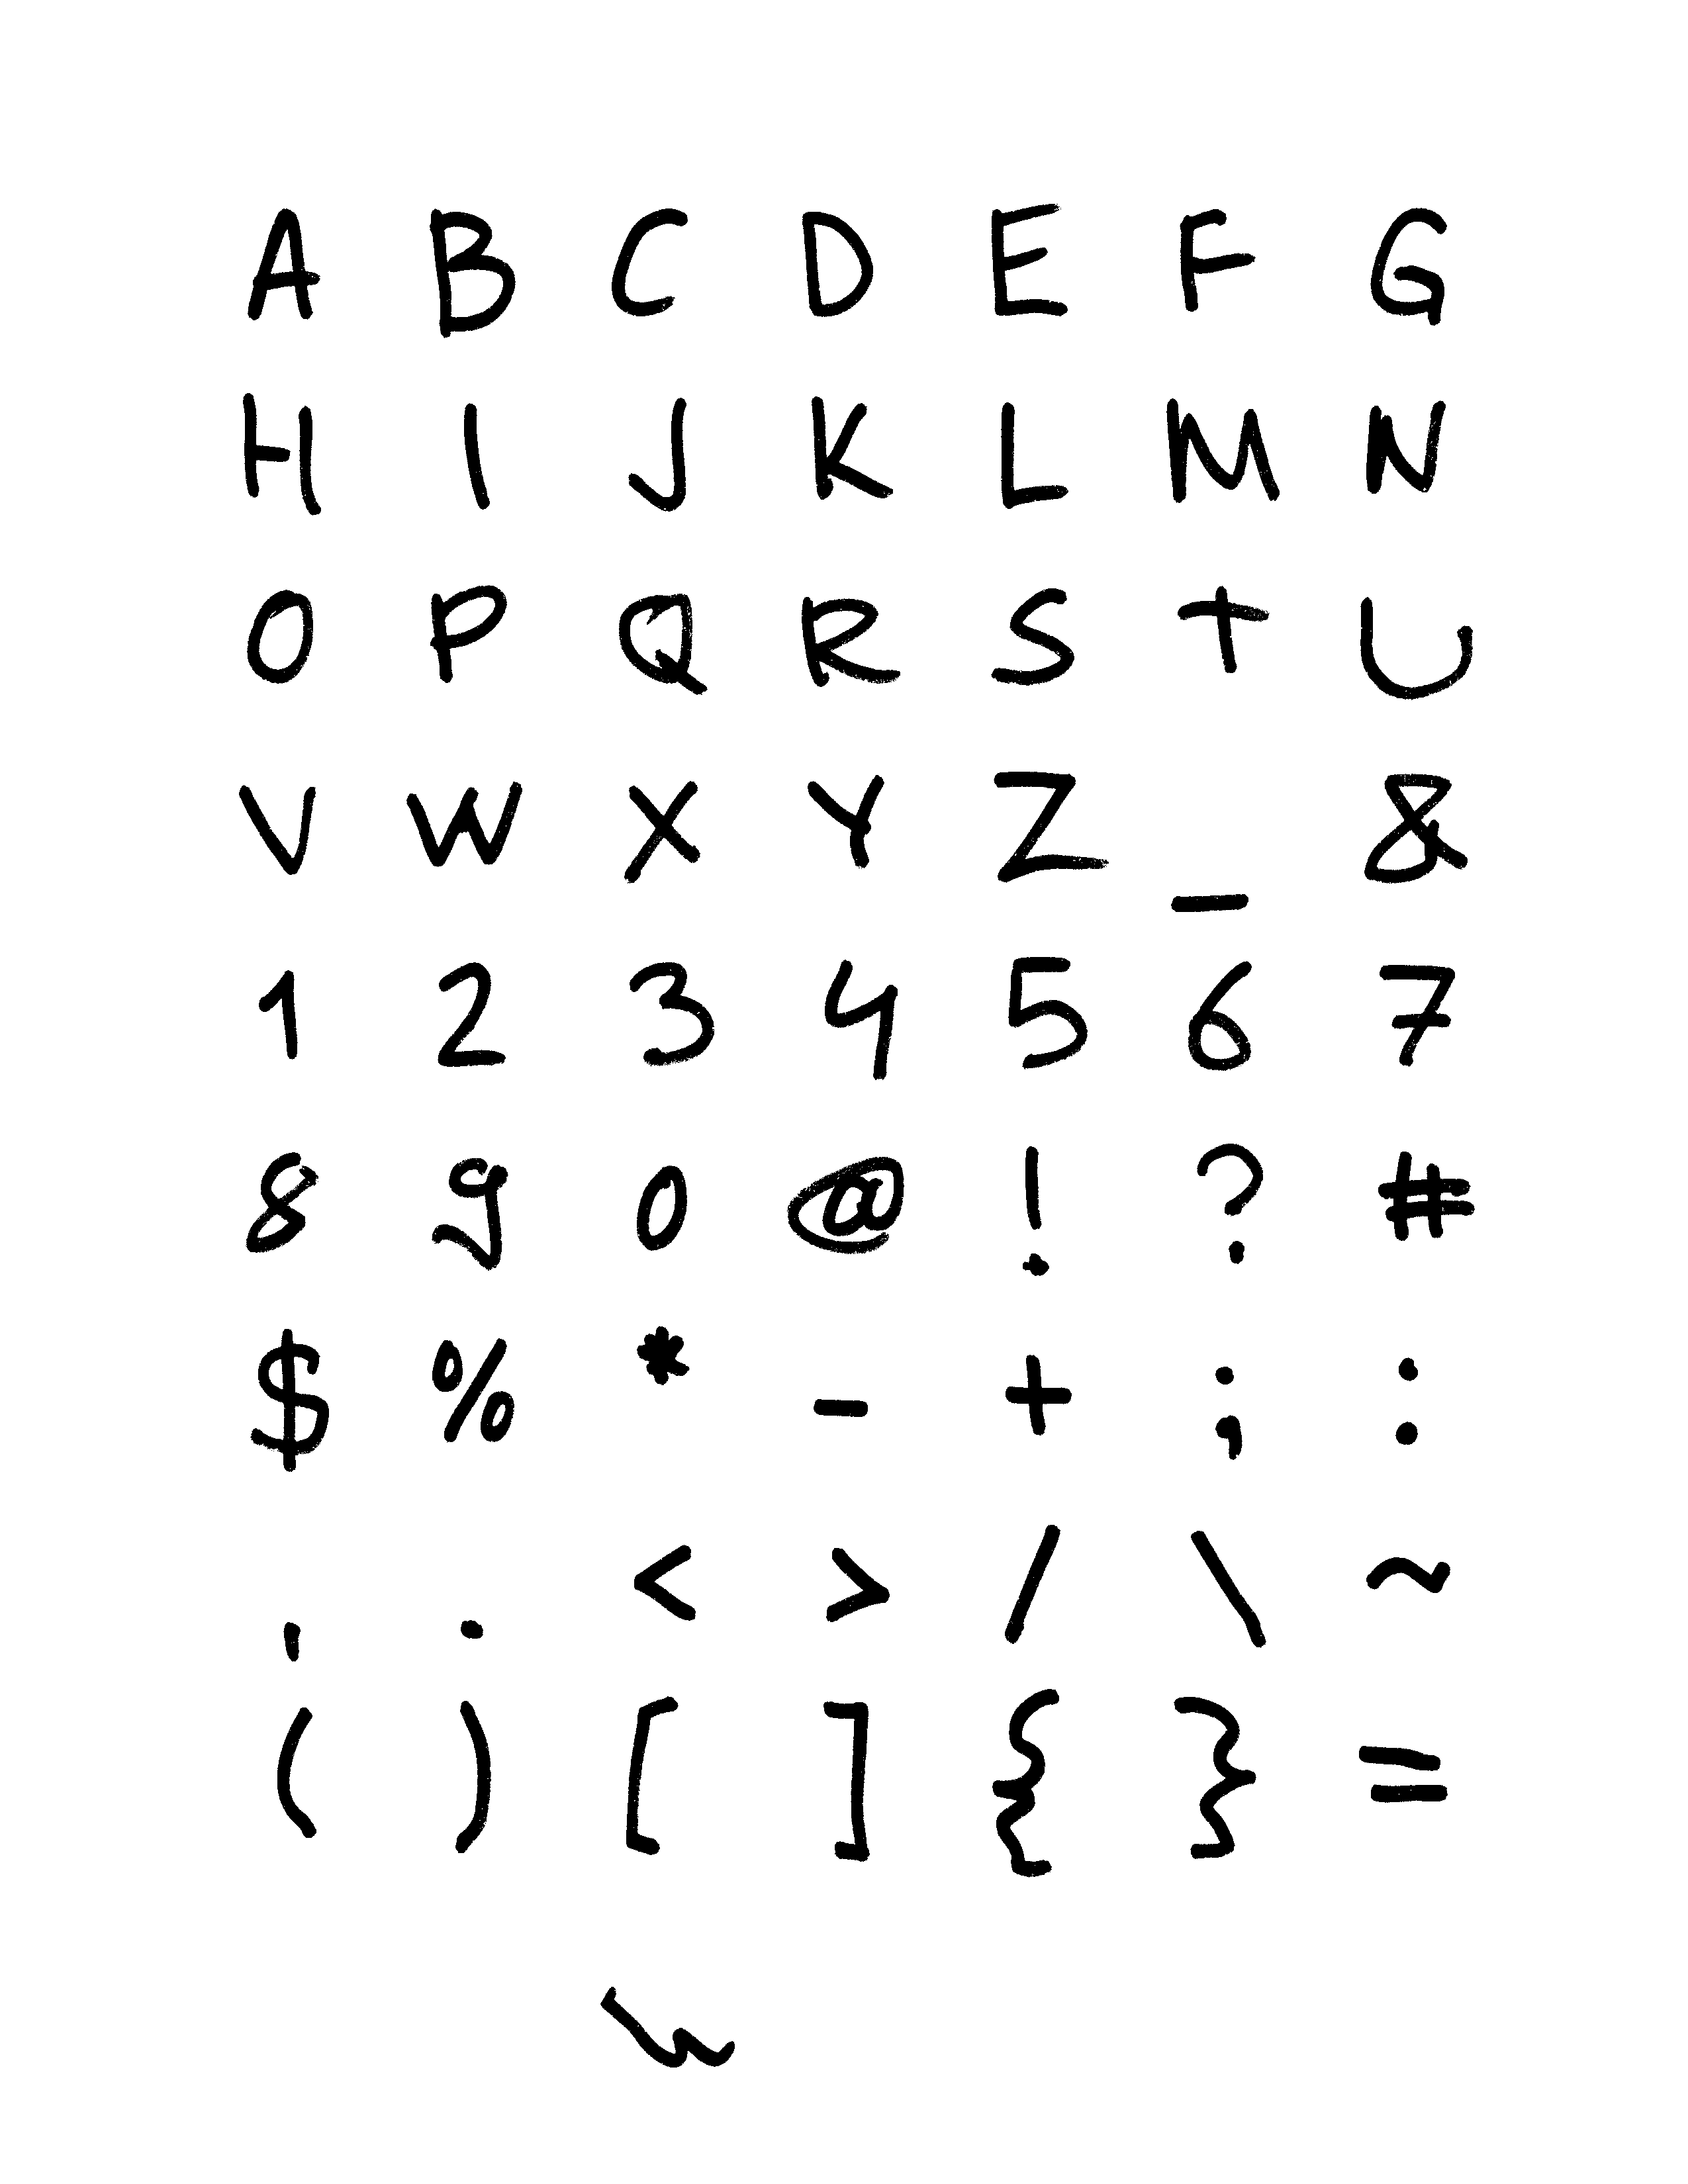 A B C D E F G
H I J K L M N
O P Q R S T U
V W X Y Z _ &
1 2 3 4 5 6 7
8 9 0 @ ! ? #
$ % * - + ; :
, . < > / \ ~
( ) [ ] { } =